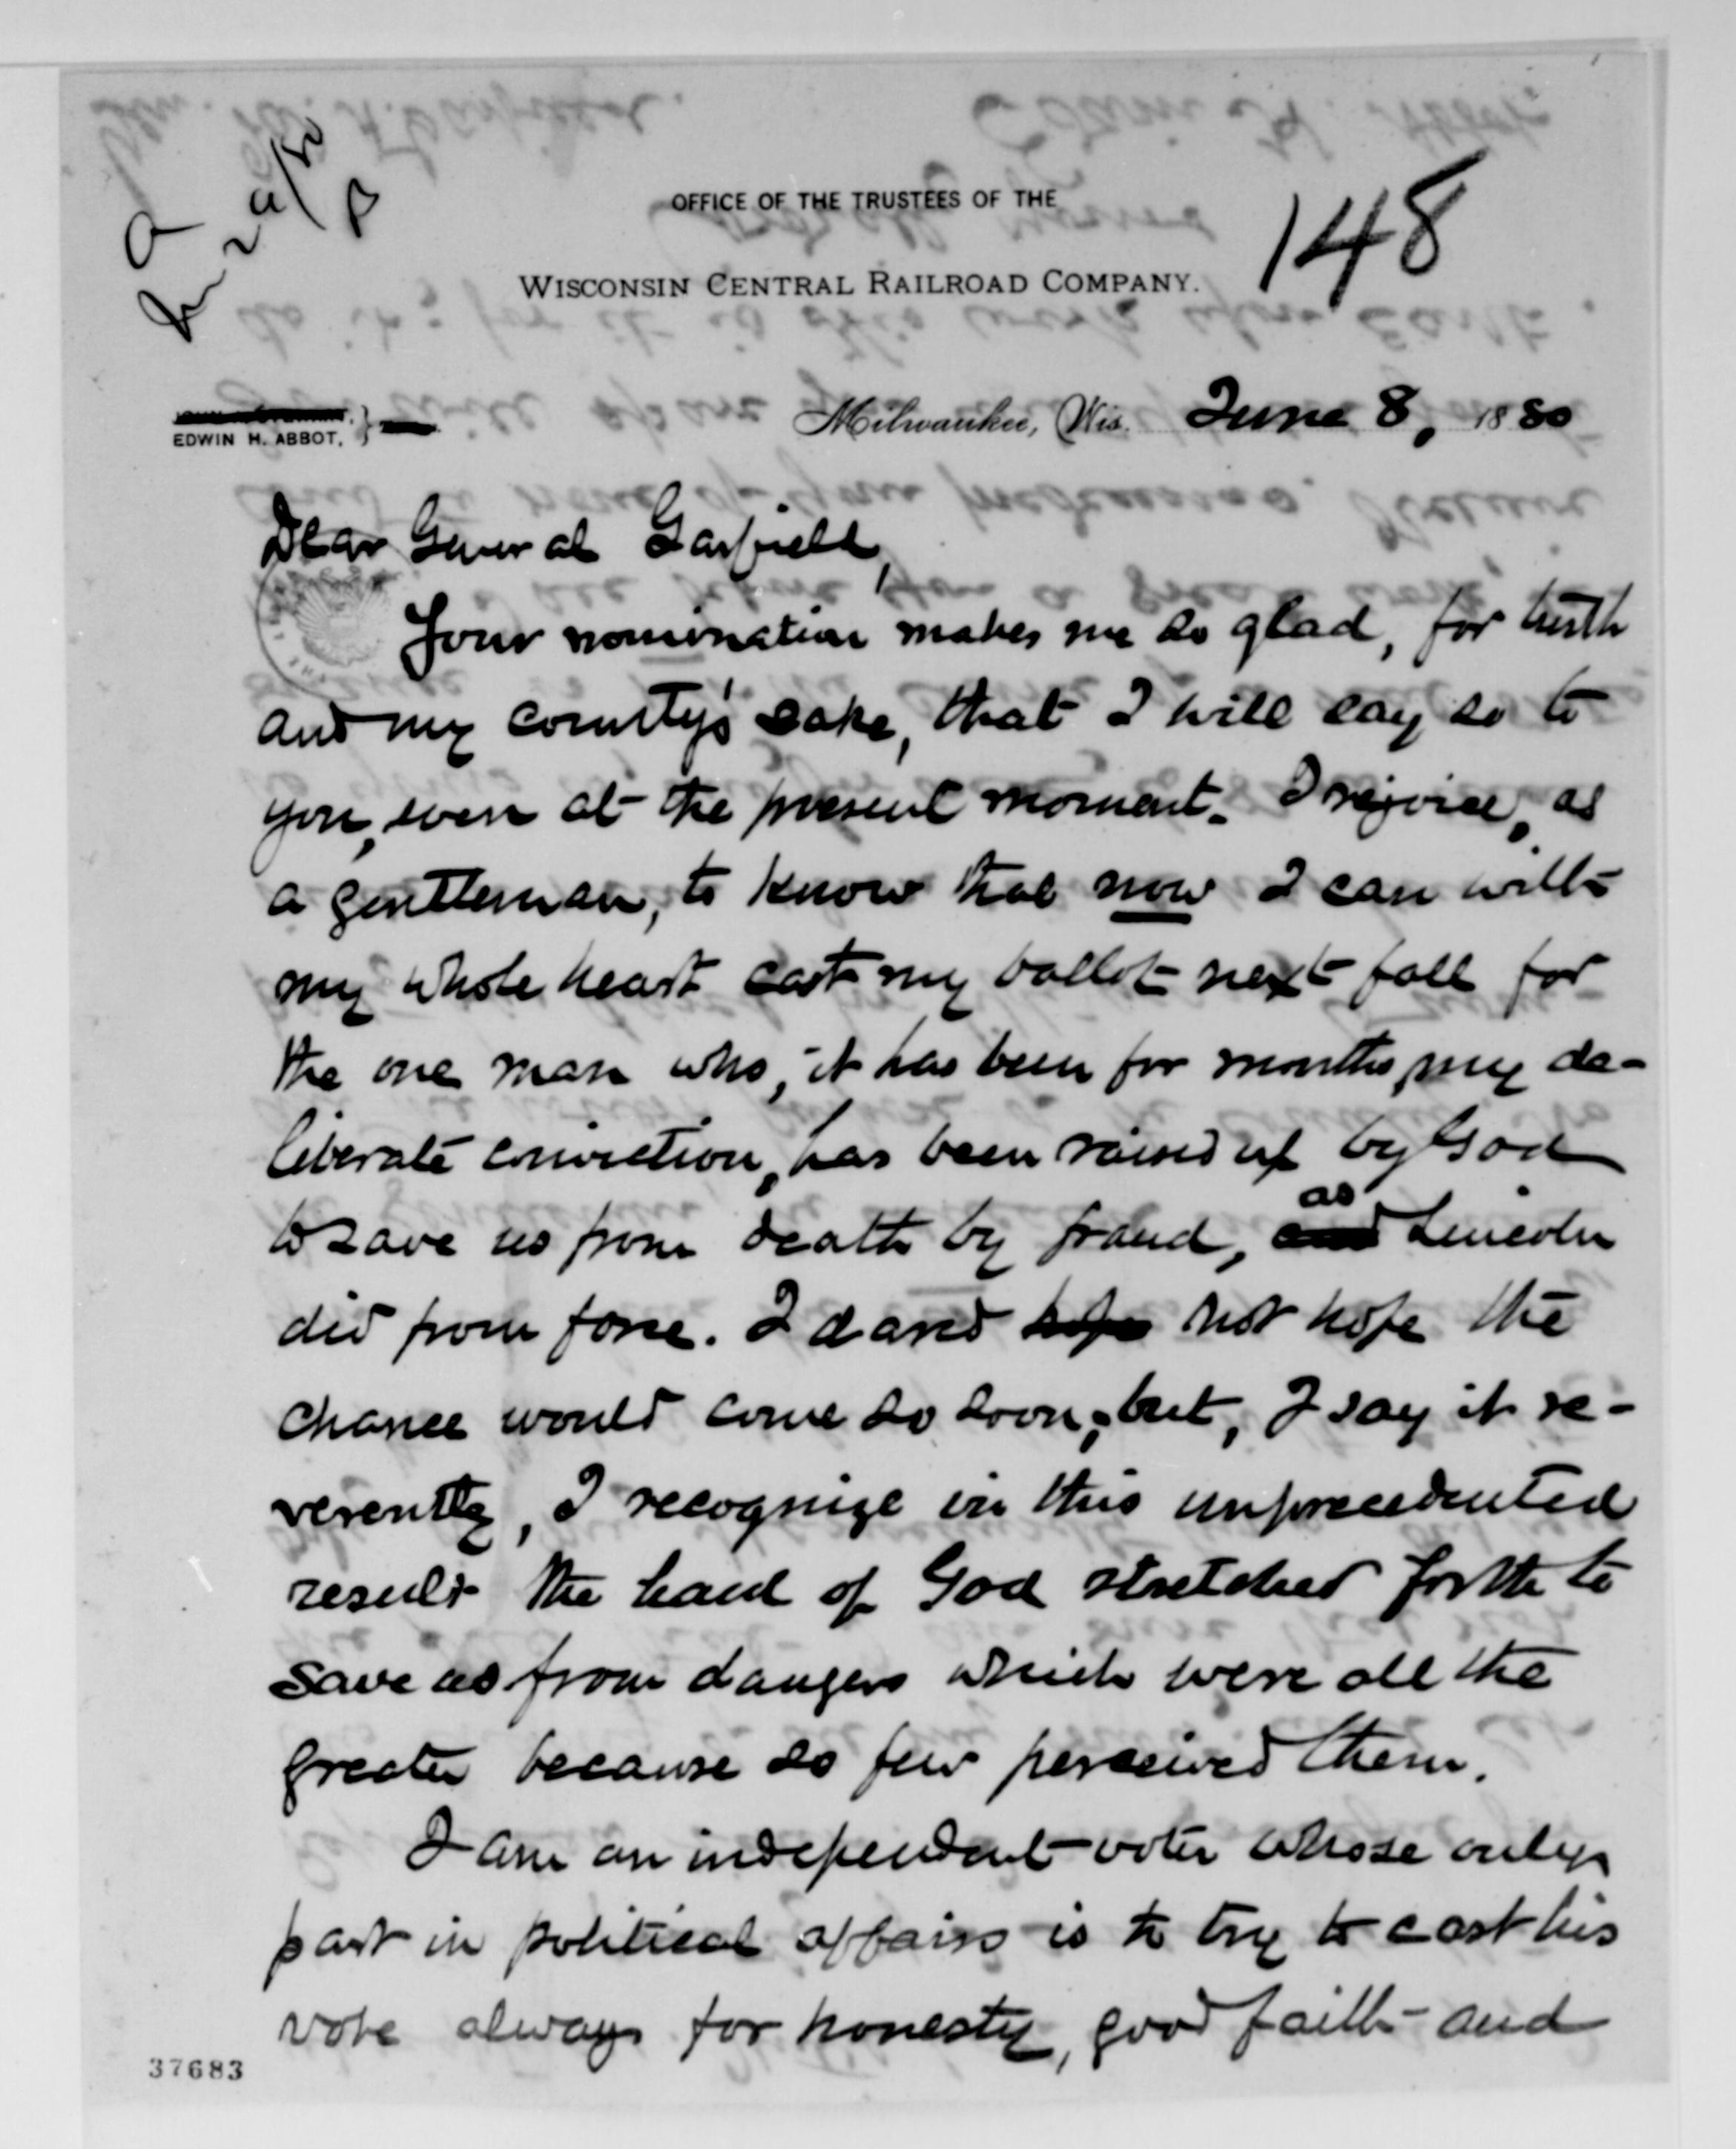 148
OFFICE OF THE TRUSTEES OF THE
WISCONSIN CENTRAL RAILROAD COMPANY.
EDWIN H. ABBOT,
Milwaukee, Wis. June 8, 1880
Dear General Garfield,
Your nomination makes me so glad, for truth
and my country's sake, that I will say so to
you, even at the present moment. I rejoice, as
a gentleman, to know that now I can with
my whole heart cast my ballot next fall for
the one man who, it has been for months my de-
liberate conviction, has been raised up by God
to save us from death by fraud, as Lincoln
did from force. I dared hope not hope the
chance would come so soon; but, I say it re-
verently, I recognize in this unprecedented
result the hand of God stretched forth to
save us from dangers which were all the
greater because so few perceived them.
I am an independent voter whose only
part in political affairs is to try to cast his
vote always for honesty, good faith and
37683